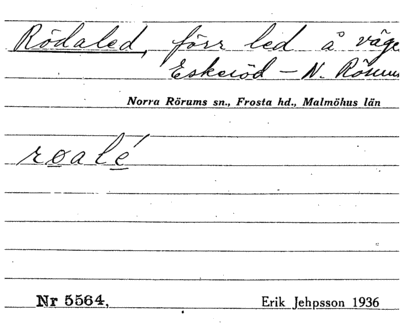 Rödaled, förr led å väge
Eskeröd – N. Rörum
Norra Rörums sn., Frosta hd., Malmöhus län
roalé
Nr 5564. Erik Jehpsson 1936